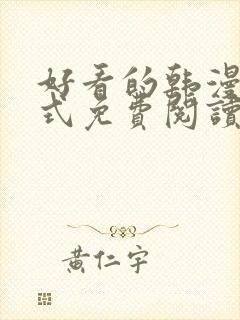 好看的韩漫
式免費閱讀
黃仁宇